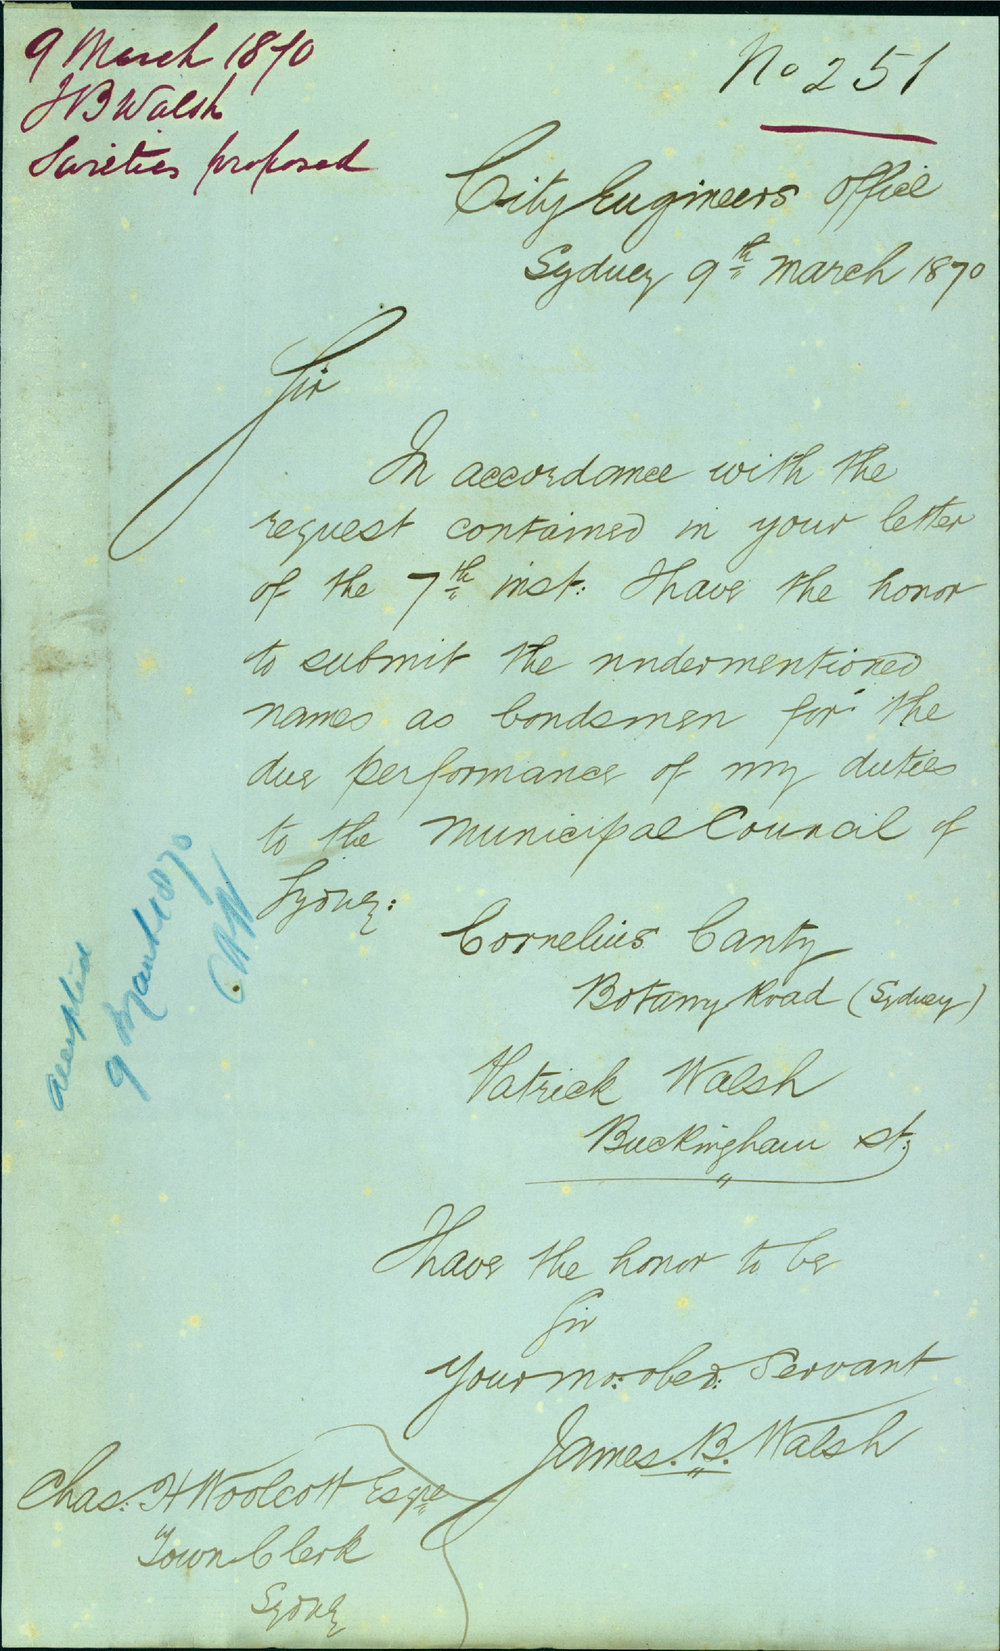 9 March 1870
J B Walsh
Sureties proposed
No 251
City Engineers Office
Sydney 9th March 1870
Sir
In accordance with the
request contained in your letter
of the 7th inst: I have the honor
to submit the undermentioned
names as bondsmen for the
due performance of my duties
to the Municipal Council of
Sydney:
Cornelius Canty
Botany Road (Sydney)
Patrick Walsh
Buckingham St:
I have the honor to be
Sir
Your mo: obed: Servant
James. B. Walsh
Chas: H Woolcott Esqre
Town Clerk
Sydney
Accepted
9 March 1870
C H W